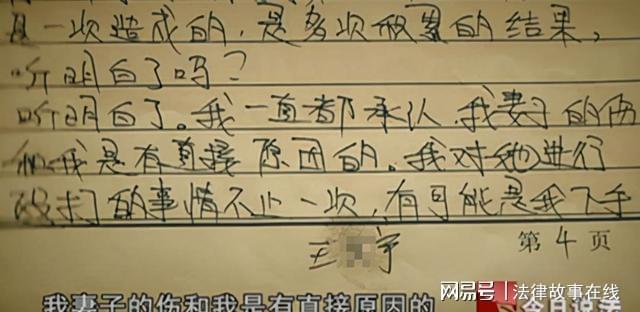 是一次造成的，是多次积累的结果，
听明白了吗？
听明白了。我一直都承认，我妻子的伤
和我是有直接原因的。我对她进行
殴打的事情不止一次，有可能是我下手
王 宇
第 4 页
我妻子的伤和我是有直接原因的
网易号 | 法律故事在线
今日说法